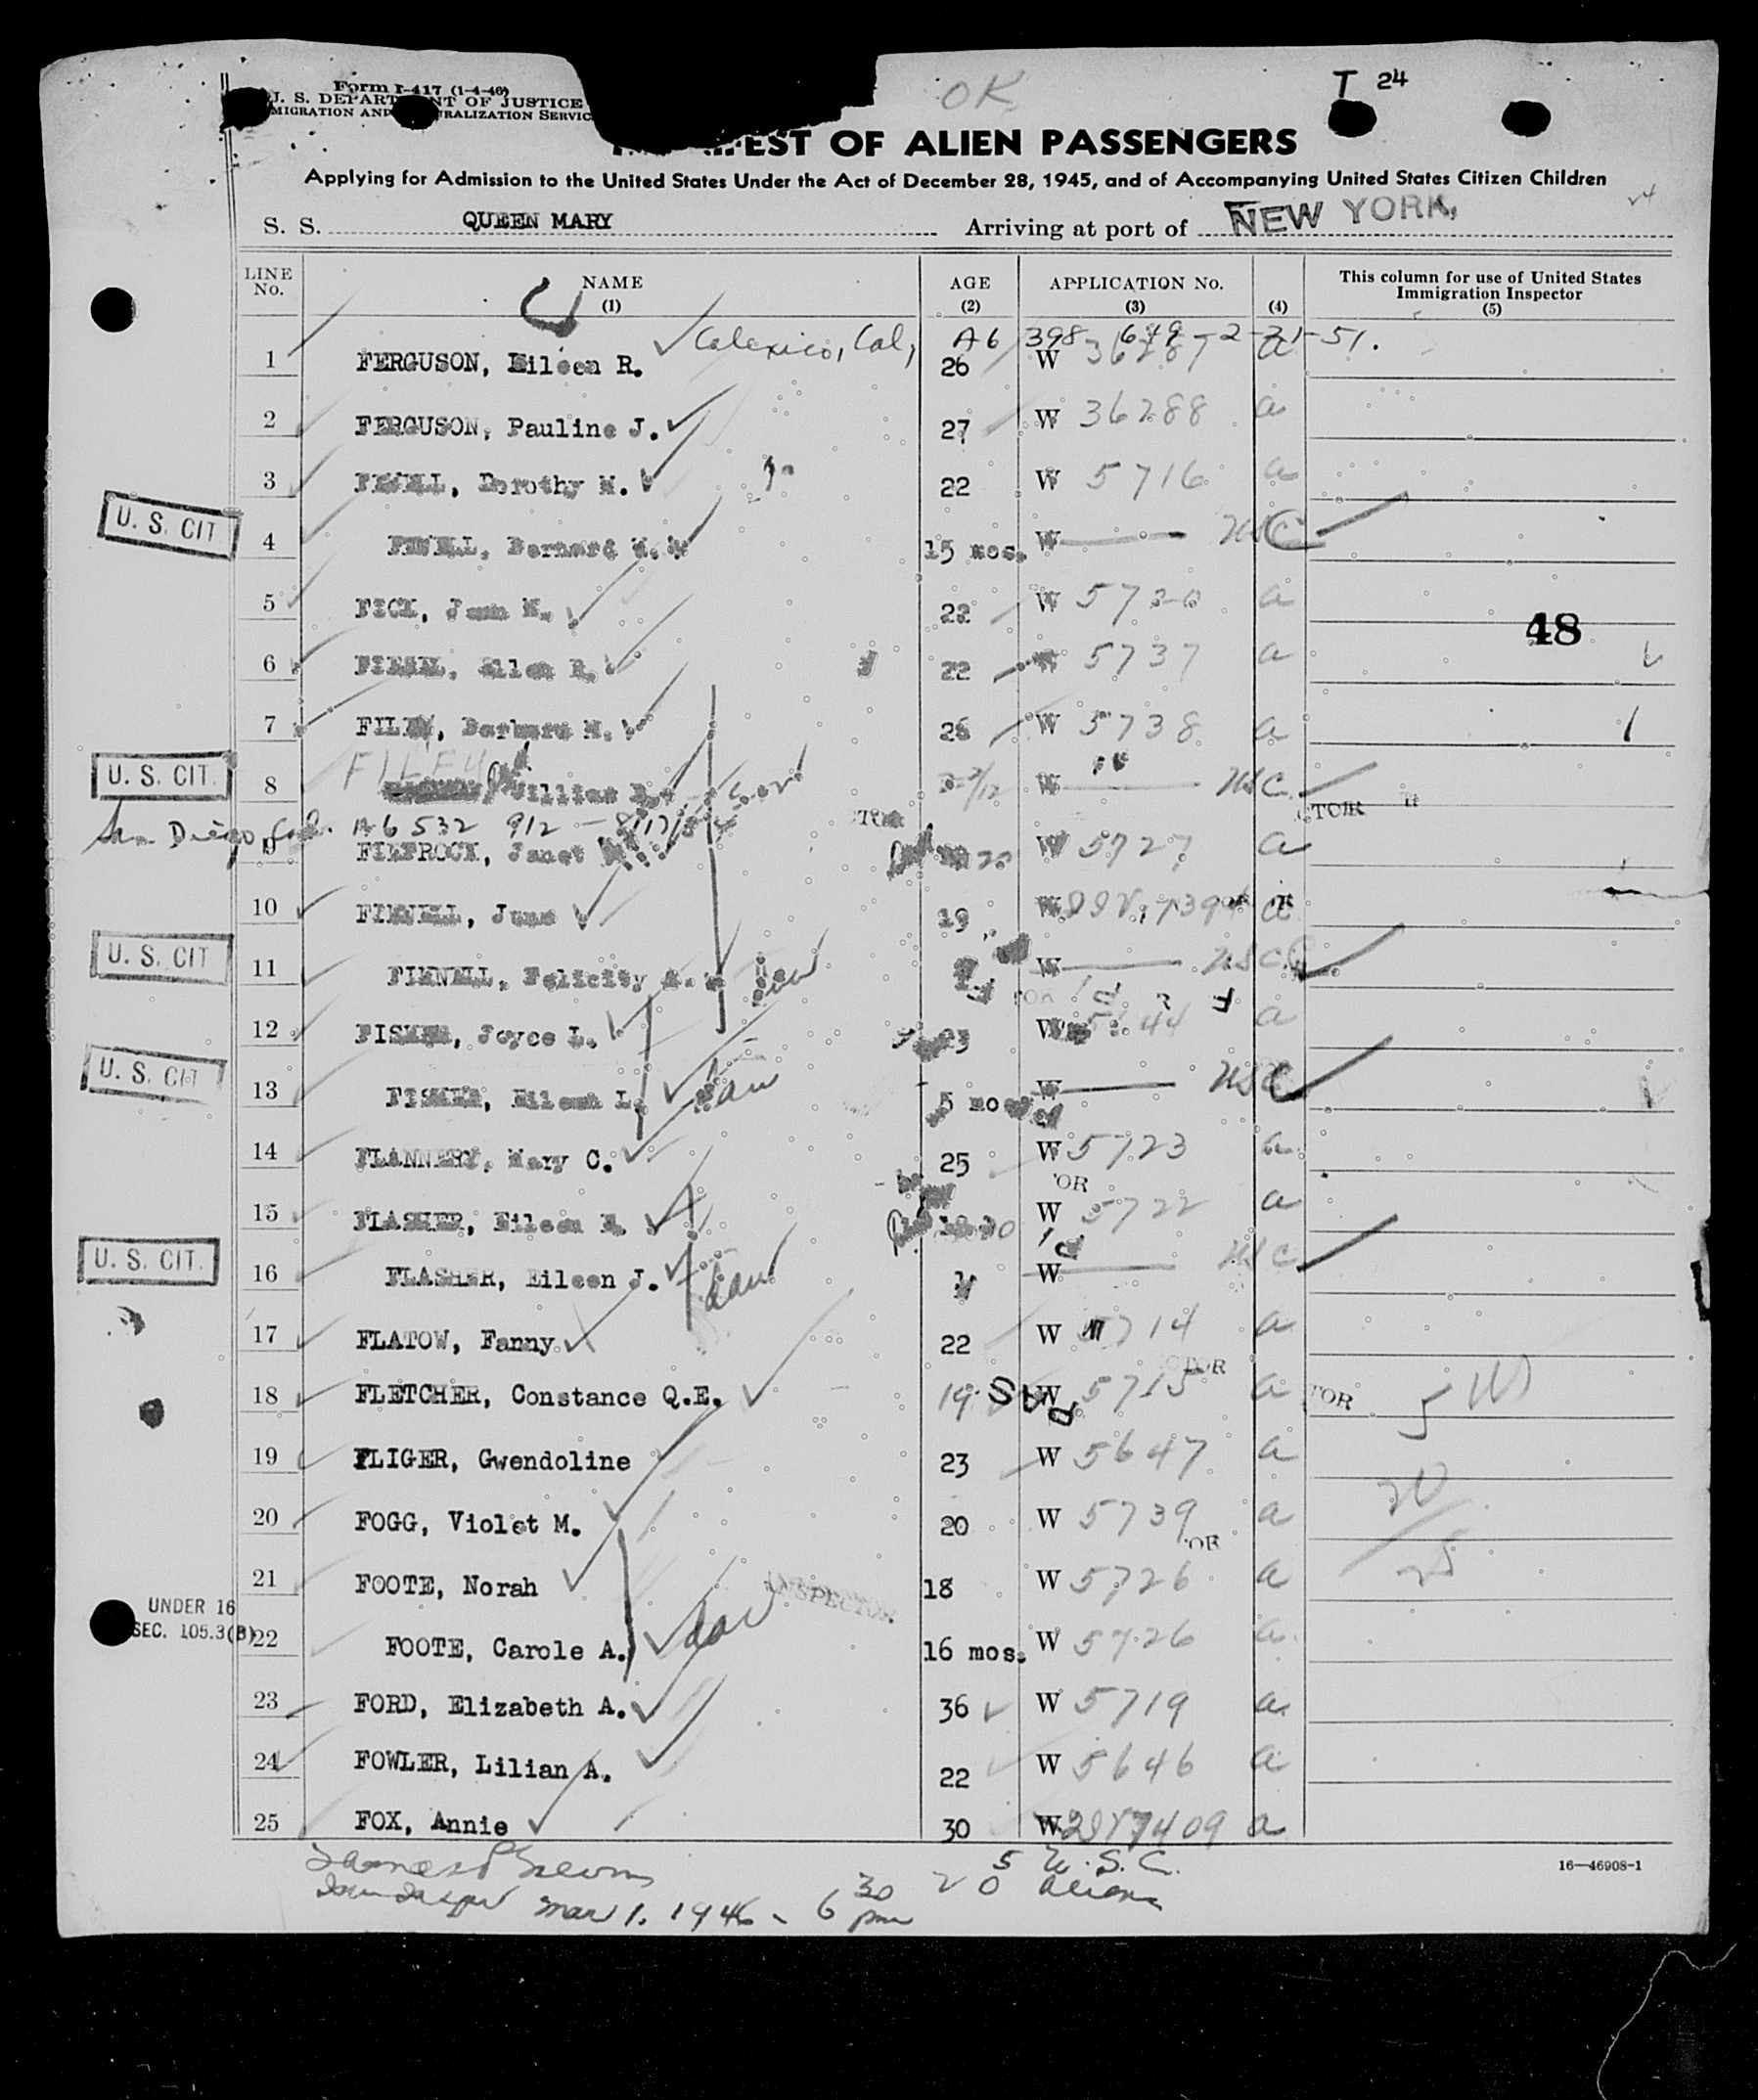 OK
T 24
Form I-417 (1-4-46)
U. S. DEPARTMENT OF JUSTICE
IMMIGRATION AND NATURALIZATION SERVICE
MANIFEST OF ALIEN PASSENGERS
Applying for Admission to the United States Under the Act of December 28, 1945, and of Accompanying United States Citizen Children
S. S. QUEEN MARY Arriving at port of NEW YORK,
LINE No. NAME (1) AGE (2) APPLICATION No. (3) (4) This column for use of United States Immigration Inspector (5)
Calexico, Cal, A6 398 649 2-21-51.
1 FERGUSON, Eileen R. 26 W 36287 a
2 FERGUSON, Pauline J. 27 W 36288 a
3 FEWELL, Dorothy M. 22 W 5716 a
U. S. CIT 4 FEWELL, Bernard 15 mos. W USC
5 FICK, Jean M. 22 W 5720 a
48
6 Ellen R. 22 W 5737 a
7 FILEY, Barbara M. W 5738 a
U. S. CIT. 8 FILEY William W USC
San Diego Cal. A6 532 912
9 Janet W 5727 a
10 FIENELL, June 19 W a
U. S. CIT 11 FIENELL, Felicity A. W USC
12 FISHER, Joyce L. 23 W 44 a
U. S. CIT 13 FISHER, Eileen L. 5 mos W USC
14 FLANNERY, Mary C. 25 W 5723 a
OR
15 FLASHER, Eileen W 5722 a
U. S. CIT. 16 FLASHER, Eileen J. W USC
17 FLATOW, Fanny 22 W 5714 a
18 FLETCHER, Constance Q.E. 19 W 5715 a
19 FLIGER, Gwendoline 23 W 5647 a
20 FOGG, Violet M. 20 W 5739 a
OR
21 FOOTE, Norah 18 W 5726 a
INSPECTOR
UNDER 16
SEC. 105.3(B) 22 FOOTE, Carole A. 16 mos. W 5726 a
23 FORD, Elizabeth A. 36 W 5719 a
24 FOWLER, Lilian A. 22 W 5646 a
25 FOX, Annie 30 W 2987409 a
5 U.S.C.
16—46908-1
Mar 1, 1946 - 6 30 pm 20 aliens